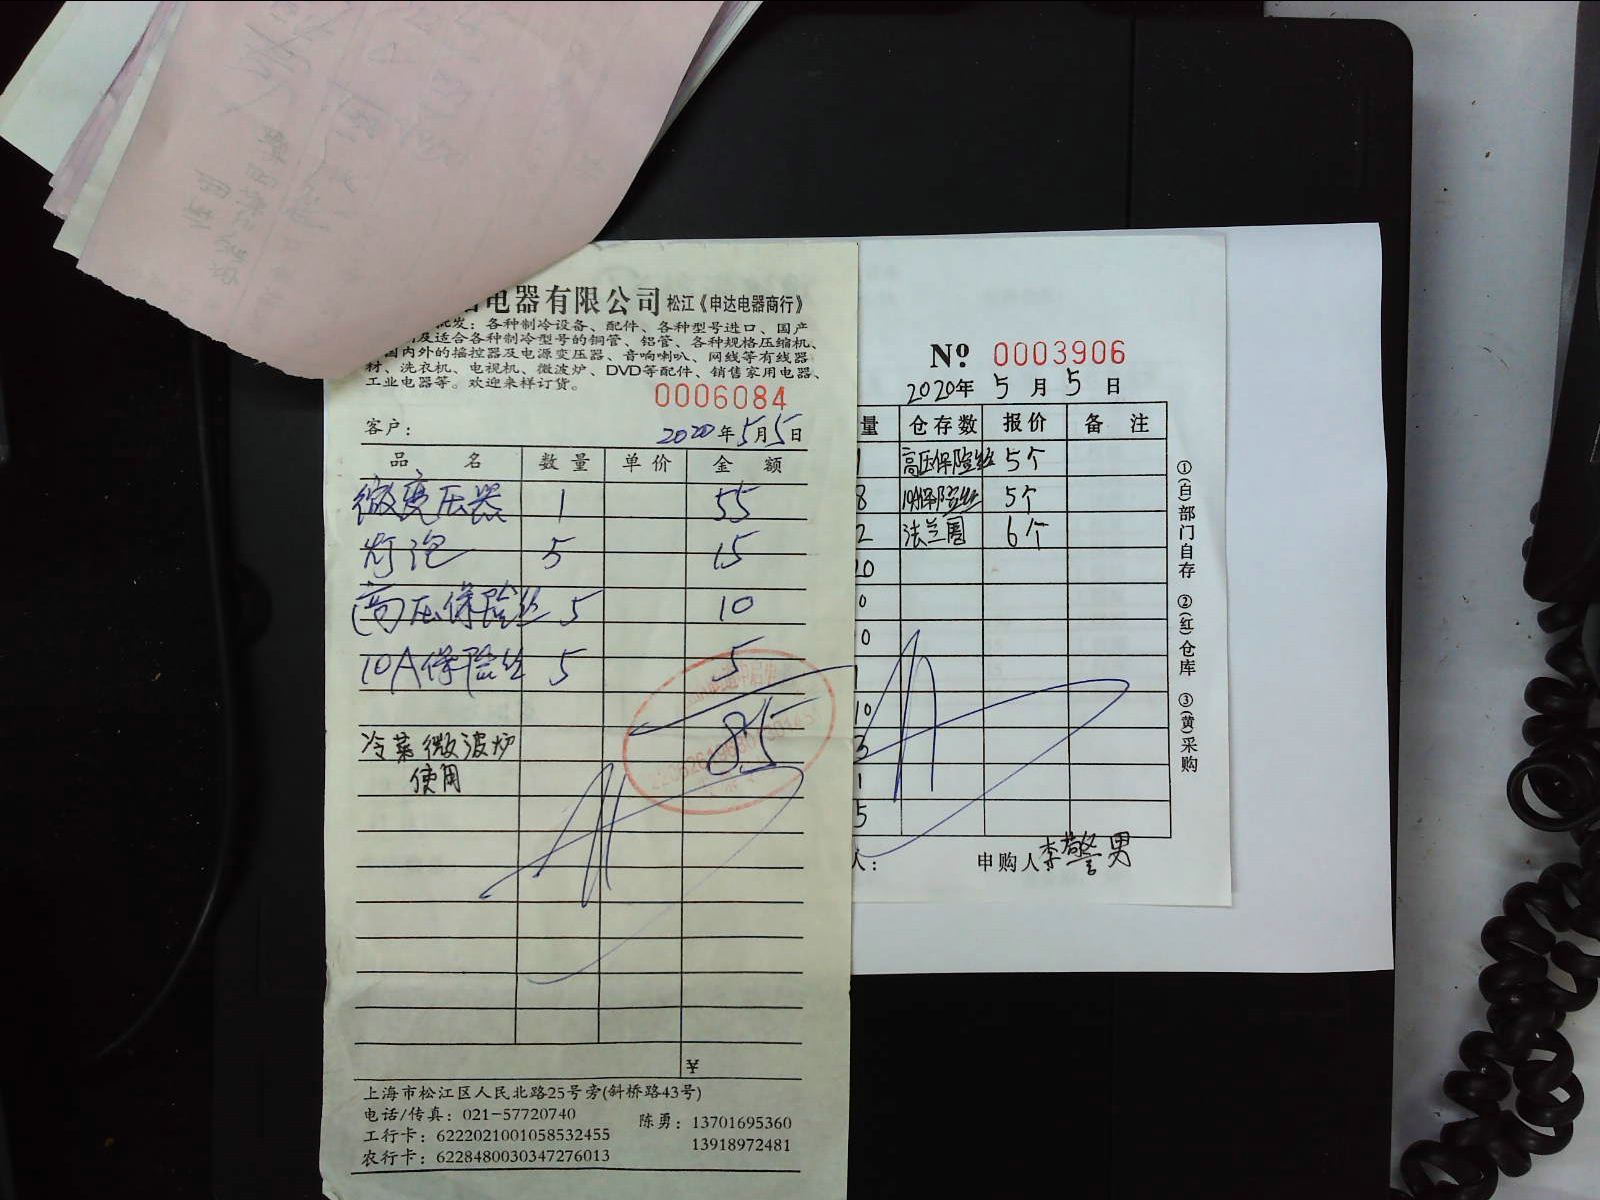 电器有限公司 松江《申达电器商行》
批发：各种制冷设备、配件、各种型号进口、国产
及适合各种制冷型号的铜管、铝管、各种规格压缩机、
国内外的摇控器及电源变压器、音响喇叭、网线等有线器
材、洗衣机、电视机、微波炉、DVD等配件、销售家用电器、
工业电器等。欢迎来样订货。
0006084
客户： 2020年5月5日
品 名 数量 单价 金 额
微变压器 1 55
灯泡 5 15
高压保险丝 5 10
10A保险丝 5 5
85
冷菜微波炉
使用
¥
上海市松江区人民北路25号旁(斜桥路43号)
电话/传真：021-57720740
陈勇：13701695360
工行卡：6222021001058532455
13918972481
农行卡：6228480030347276013
Nº 0003906
2020年5月5日
量 仓存数 报价 备 注
1 高压保险丝 5个
8 10A保险丝 5个
2 法兰圈 6个
20
0
0
1
10
3
1
5
人： 申购人李警男
①(白)部门自存 ②(红)仓库 ③(黄)采购